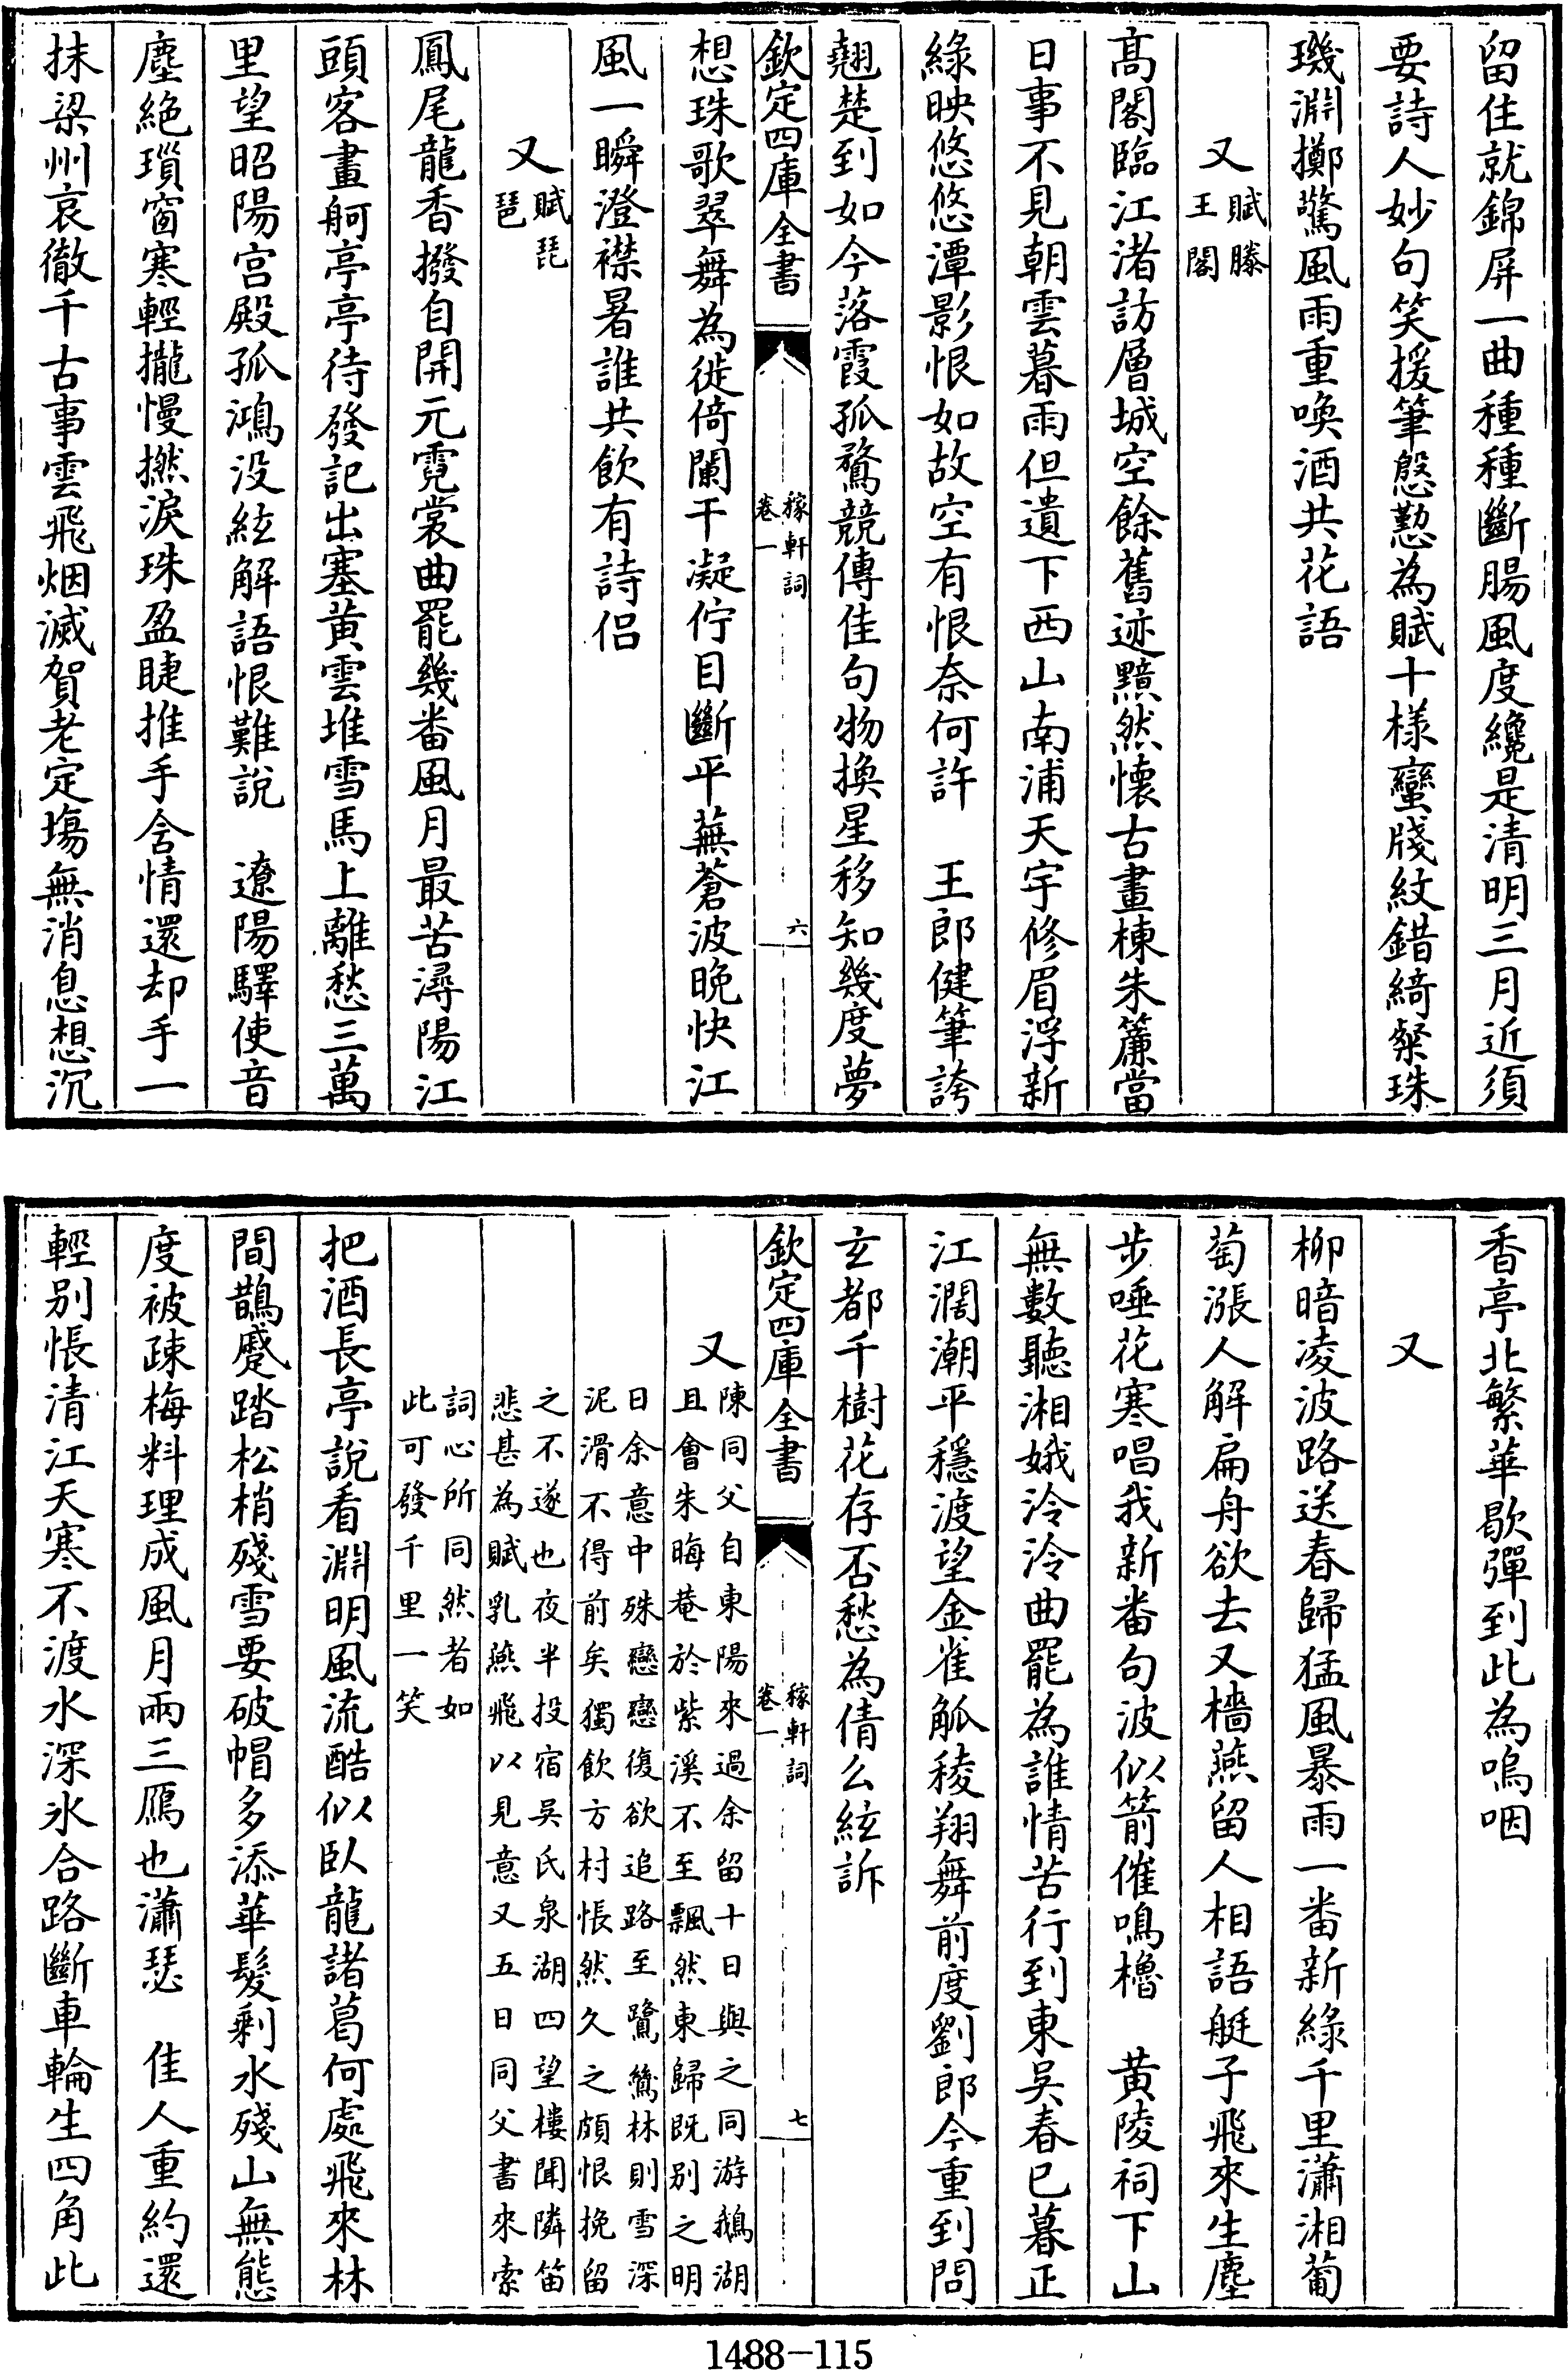 留住就錦屏一曲種種斷腸風度纔是清明三月近須
要詩人妙句笑援筆慇懃為賦十樣蠻牋紋錯綺粲珠
璣淵擲驚風雨重喚酒共花語
又賦滕
王閣
髙閣臨江渚訪層城空餘舊迹黯然懷古畫棟朱簾當
日事不見朝雲暮雨但遺下西山南浦天宇修眉浮新
綠映悠悠潭影恨如故空有恨奈何許　王郎健筆誇
翹楚到如今落霞孤鶩競傳佳句物換星移知幾度夢
欽定四庫全書
稼軒詞
卷一
六
想珠歌翠舞為徙倚闌干凝佇目斷平蕪蒼波晚快江
風一瞬澄襟暑誰共飲有詩侣
又賦琵
琶
鳳尾龍香撥自開元霓裳曲罷幾番風月最苦潯陽江
頭客畫舸亭亭待發記出塞黄雲堆雪馬上離愁三萬
里望昭陽宫殿孤鴻没絃解語恨難説　遼陽驛使音
塵絶瑣窗寒輕攏慢撚淚珠盈睫推手含情還却手一
抹梁州哀徹千古事雲飛烟滅賀老定塲無消息想沉
香亭北繁華歇彈到此為嗚咽
又
柳暗凌波路送春歸猛風暴雨一番新綠千里瀟湘葡
萄漲人解扁舟欲去又檣燕留人相語艇子飛來生塵
步唾花寒唱我新番句波似箭催鳴櫓　黄陵祠下山
無數聽湘娥泠泠曲罷為誰情苦行到東吳春已暮正
江濶潮平穩渡望金雀觚稜翔舞前度劉郎今重到問
玄都千樹花存否愁為倩么絃訴
欽定四庫全書
稼軒詞
卷一
七
又陳同父自東陽來過余留十日與之同游鵝湖
且會朱晦菴於紫溪不至飄然東歸既别之明
日余意中殊戀戀復欲追路至鷺鷥林則雪深
泥滑不得前矣獨飲方村悵然久之頗恨挽留
之不遂也夜半投宿吳氏泉湖四望樓聞隣笛
悲甚為賦乳燕飛以見意又五日同父書來索
詞心所同然者如
此可發千里一笑
把酒長亭說看淵明風流酷似臥龍諸葛何處飛來林
間鵲蹙踏松梢殘雪要破帽多添華髮剩水殘山無態
度被疎梅料理成風月兩三鴈也瀟瑟　佳人重約還
輕别悵清江天寒不渡水深氷合路斷車輪生四角此
1488—115